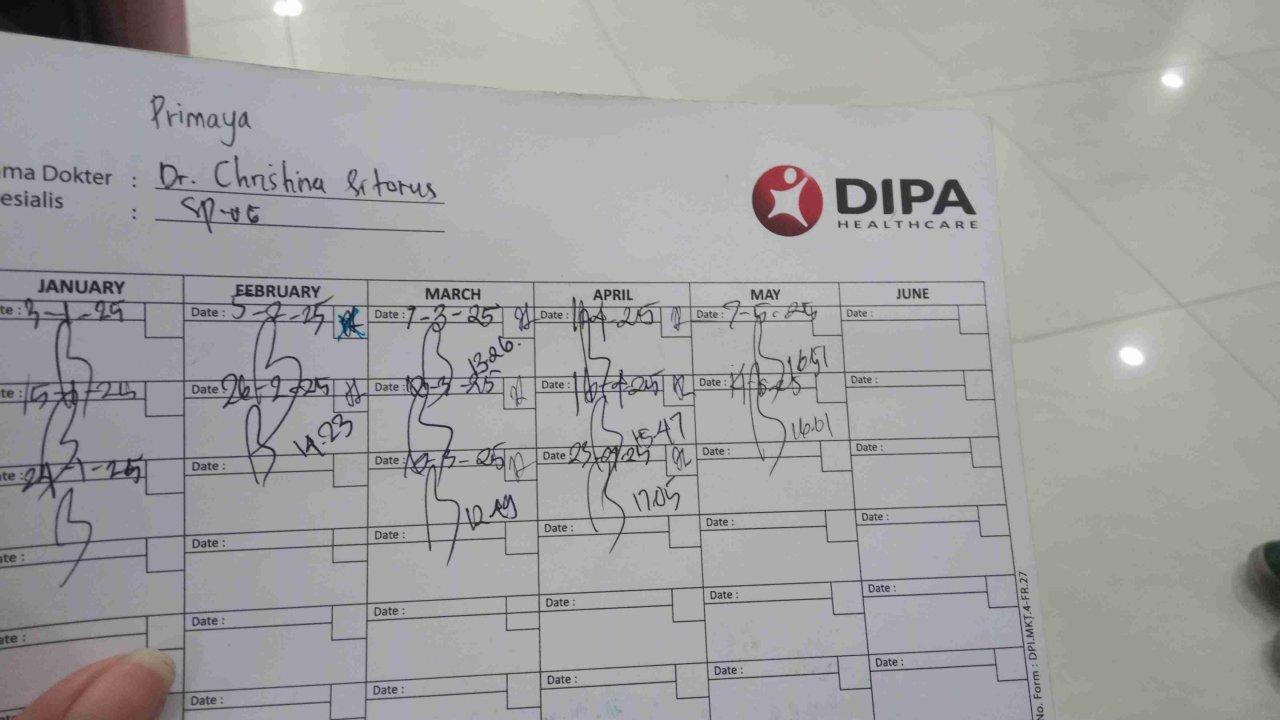 Primaya
ma Dokter : Dr. Christina Sitorus
esialis :
DIPA
HEALTHCARE
JANUARY FEBRUARY MARCH APRIL MAY JUNE
te: 3-1-25 Date: 5-2-25 Date: 7-3-25 Date: Date: 7-5-25 Date:
13.26. 16.51
te: 15-1-25 Date: 26-2-25 Date: Date: 16-4-25 Date: Date:
14.23 15.47 16.01
te: 24-1-25 Date: Date: Date: 23-04-25 Date: Date:
12.49 17.05
ate: Date: Date: Date: Date: Date:
ate: Date: Date: Date: Date: Date:
Date: Date: Date: Date: Date:
No. Form : DPI.MKT.4-FR.27